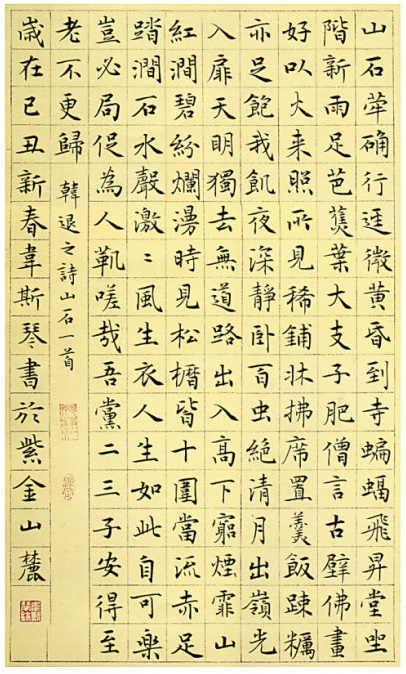 山石犖确行逕微黃昏到寺蝙蝠飛昇堂坐
階新雨足芭蕉葉大支子肥僧言古壁佛畫
好以火来照所見稀鋪牀拂席置羹飯疎糲
亦足飽我飢夜深靜卧百虫絶清月出嶺光
入扉天明獨去無道路出入高下窮煙霏山
紅澗碧紛爛漫時見松櫪皆十圍當流赤足
踏澗石水聲激〻風生衣人生如此自可樂
豈必局促為人鞿嗟哉吾黨二三子安得至
老不更歸 韓退之詩山石一首
歲在己丑新春韋斯琴書於紫金山麓